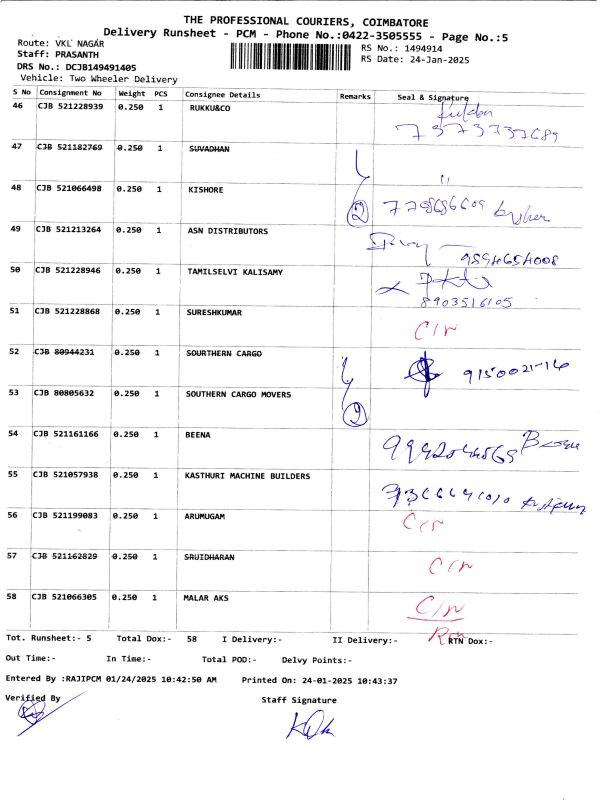 THE PROFESSIONAL COURIERS, COIMBATORE
Delivery Runsheet - PCM - Phone No.:0422-3505555 - Page No.:5
Route: VKL NAGAR
RS No.: 1494914
Staff: PRASANTH
RS Date: 24-Jan-2025
DRS No.: DCJB149491405
Vehicle: Two Wheeler Delivery
S No Consignment No Weight PCS Consignee Details Remarks Seal & Signature
46 CJB 521228939 0.250 1 RUKKU&CO
7373737689
47 CJB 521182769 0.250 1 SUVADHAN
48 CJB 521066498 0.250 1 KISHORE 2
49 CJB 521213264 0.250 1 ASN DISTRIBUTORS
9894654008
50 CJB 521228946 0.250 1 TAMILSELVI KALISAMY
8903516105
51 CJB 521228868 0.250 1 SURESHKUMAR
C/n
52 CJB 80944231 0.250 1 SOURTHERN CARGO
53 CJB 80805632 0.250 1 SOUTHERN CARGO MOVERS 2
54 CJB 521161166 0.250 1 BEENA
55 CJB 521057938 0.250 1 KASTHURI MACHINE BUILDERS
56 CJB 521199083 0.250 1 ARUMUGAM C/n
57 CJB 521162829 0.250 1 SRUIDHARAN C/n
58 CJB 521066305 0.250 1 MALAR AKS C/n
Tot. Runsheet:- 5 Total Dox:- 58 I Delivery:- II Delivery:- RTN Dox:-
Out Time:- In Time:- Total POD:- Delvy Points:-
Entered By :RAJIPCM 01/24/2025 10:42:50 AM Printed On: 24-01-2025 10:43:37
Verified By Staff Signature